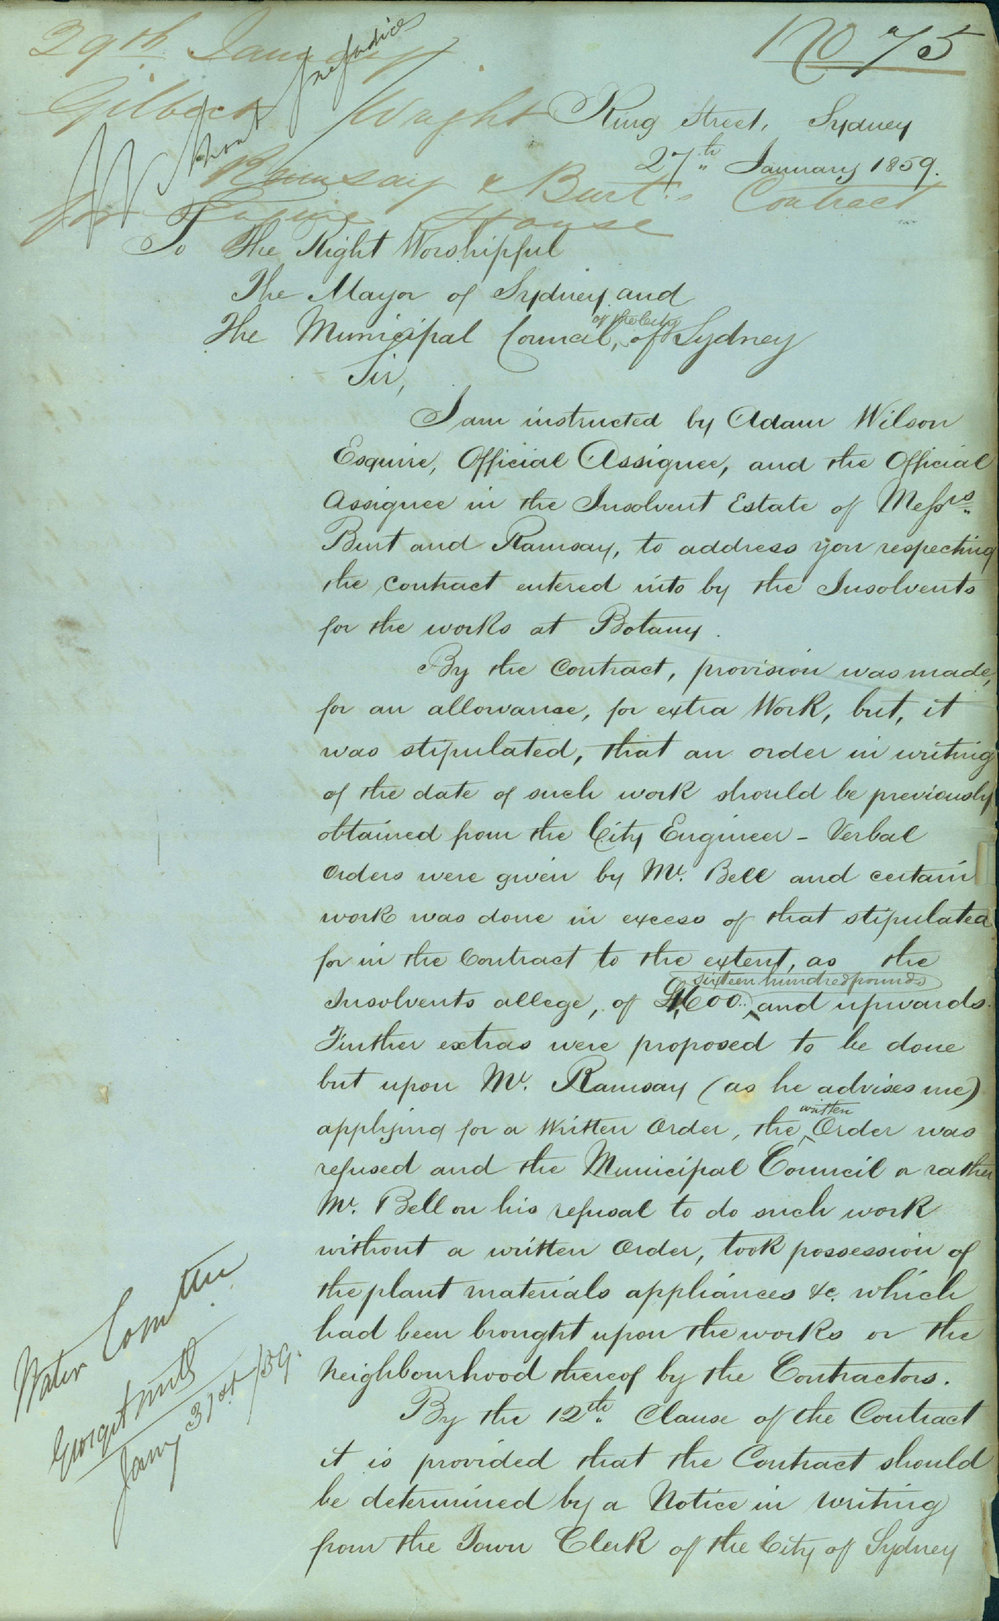 29th January
No 75
Gilbert Wright
Without prejudice
King Street, Sydney
27th January 1859.
Ramsay & Burt's Contract
for Engine House
To The Right Worshipful
The Mayor of Sydney and
The Municipal Council, of the City of Sydney
Sir,
I am instructed by Adam Wilson
Esquire, Official Assignee, and the Official
Assignee in the Insolvent Estate of Messrs
Burt and Ramsay, to address you respecting
the contract entered into by the Insolvents
for the works at Botany.
By the Contract, provision was made,
for an allowance, for extra Work, but, it
was stipulated, that an order in writing
of the date of such work should be previously
obtained from the City Engineer - Verbal
Orders were given by Mr. Bell and certain
work was done in excess of that stipulated
for in the Contract to the extent, as the
Insolvents allege, of £1,600.. sixteen hundred pounds and upwards.
Further extras were proposed to be done
but upon Mr. Ramsay (as he advises me)
applying for a Written Order, the written Order was
refused and the Municipal Council or rather
Mr. Bell on his refusal to do such work
without a written Order, took possession of
the plant materials appliances &c. which
had been brought upon the works or the
Neighbourhood thereof by the Contractors.
Water Comttee
By the 12th Clause of the Contract
George Smith
it is provided that the Contract should
Jany 31st/59.
be determined by a Notice in writing
from the Town Clerk of the City of Sydney